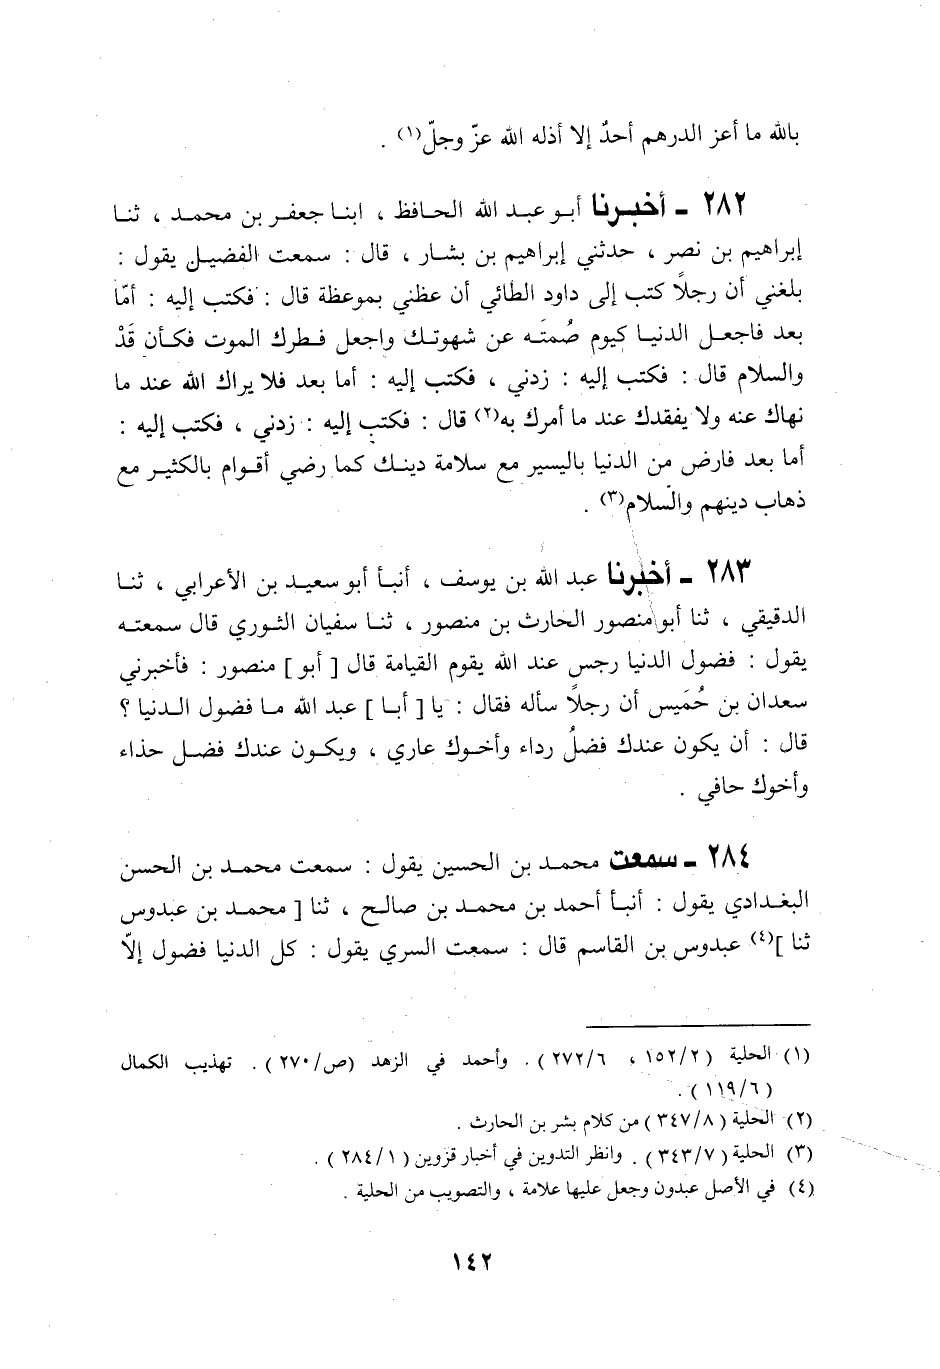 بالله ما أعز الدرهم أحدٌ إلا أذله الله عزّ وجلّ(١) .
٢٨٢ ـ أخبرنا أبو عبد الله الحافظ ، ابنا جعفر بن محمد ، ثنا
إبراهيم بن نصر ، حدثني إبراهيم بن بشار ، قال : سمعت الفضيل يقول :
بلغني أن رجلاً كتب إلى داود الطائي أن عظني بموعظة قال : فكتب إليه : أمّا
بعد فاجعل الدنيا كيوم صُمتَه عن شهوتك واجعل فطرك الموت فكأن قَدْ
والسلام قال : فكتب إليه : زدني ، فكتب إليه : أما بعد فلا يراك الله عند ما
نهاك عنه ولا يفقدك عند ما أمرك به(٢) قال : فكتب إليه : زدني ، فكتب إليه :
أما بعد فارض من الدنيا باليسير مع سلامة دينك كما رضي أقوام بالكثير مع
ذهاب دينهم والسّلام(٣) .
٢٨٣ ـ أخبرنا عبد الله بن يوسف ، أنبأ أبو سعيد بن الأعرابي ، ثنا
الدقيقي ، ثنا أبو منصور الحارث بن منصور ، ثنا سفيان الثوري قال سمعته
يقول : فضول الدنيا رجس عند الله يقوم القيامة قال [ أبو ] منصور : فأخبرني
سعدان بن خُمَيس أن رجلاً سأله فقال : يا [ أبا ] عبد الله ما فضول الدنيا ؟
قال : أن يكون عندك فضلُ رداء وأخوك عاري ، ويكون عندك فضل حذاء
وأخوك حافي .
٢٨٤ ـ سمعت محمد بن الحسين يقول : سمعت محمد بن الحسن
البغدادي يقول : أنبأ أحمد بن محمد بن صالح ، ثنا [ محمد بن عبدوس
ثنا ](٤) عبدوس بن القاسم قال : سمعت السري يقول : كل الدنيا فضول إلاّ
(١) الحلية (١٥٢/٢ ، ٢٧٢/٦) . وأحمد في الزهد (ص/٢٧٠) . تهذيب الكمال
(١١٩/٦) .
(٢) الحلية (٣٤٧/٨) من كلام بشر بن الحارث .
(٣) الحلية (٣٤٣/٧) . وانظر التدوين في أخبار قزوين (٢٨٤/١) .
(٤) في الأصل عبدون وجعل عليها علامة ، والتصويب من الحلية .
١٤٢